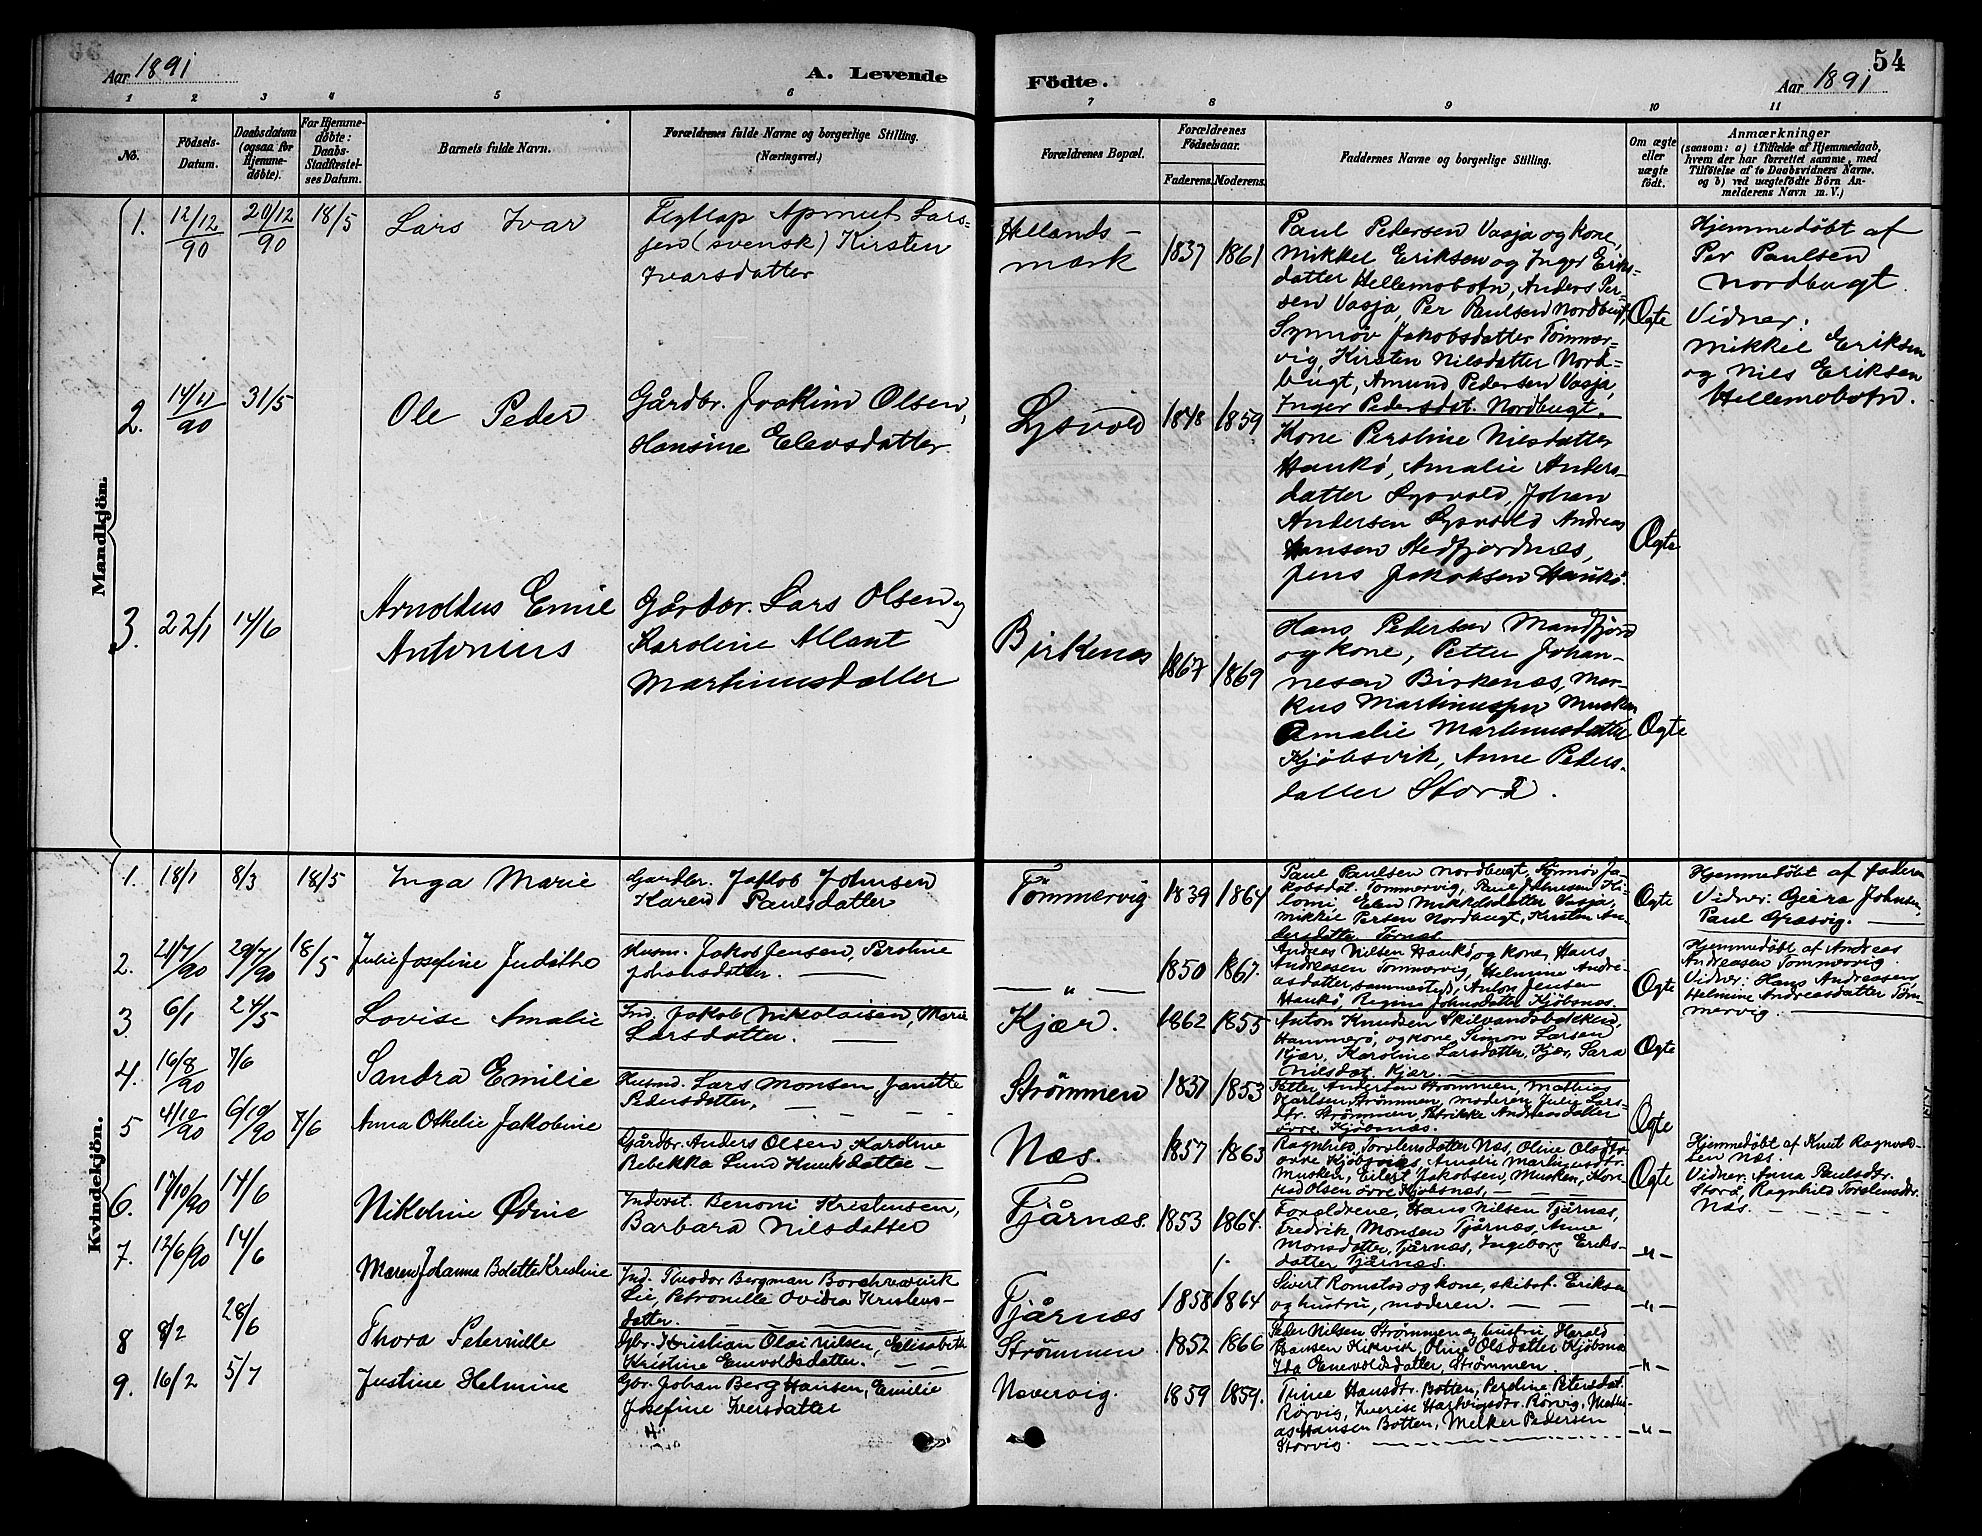 Aar 1891
A. Levende
Födte.
54
Aar 1891
1 2 3 4 5 6 7 8 9 10 11
No.
Födsels-
Datum.
Daabsdatum
(ogsaa for
Hjemme-
døbte).
For Hjemme-
døbte:
Daabs-
Stadfæstel-
ses Datum.
Barnets fulde Navn.
Forældrenes fulde Navne og borgerlige Stilling.
(Næringsvei.)
Forældrenes Bopæl.
Forældrenes
Födselsaar.
Faderens. Moderens.
Faddernes Navne og borgerlige Stilling.
Om ægte
eller
uægte
født.
Anmærkninger
(saasom: a) i Tilfælde af Hjemmedaab,
hvem der har forrettet samme, med
Tilföielse af to Daabsvidners Navne.
og b) ved uægtefödte Börn An-
melderens Navn m. V.)
Mandkjön.
1. 12/12 90 20/12 90 18/5 Lars Ivar
Flytlap Apmut Lars-
sen (svensk) Kirsten
Ivarsdatter
Hellands-
mark
1837 1861
Paul Pedersen Vasja og kone,
Mikkel Eriksen og Inger Eriks-
datter Hellemobotn, Anders Per-
sen Vasja, Per Paulsen Nordbugt,
Synnøv Jakobsdatter Tømmer-
vig, Kirsten Nilsdatter Nord-
bugt, Amund Pedersen Vasja,
Inger Pedersdat. Nordbugt.
Ægte
Hjemmedøbt af
Per Paulsen
Nordbugt.
Vidner:
Mikkel Eriksen
og Nils Eriksen
Hellemobotn.
2. 14/11 90 31/5 Ole Peder
Gårdbr. Joakim Olsen,
Hansine Elevsdatter.
Lysvold 1848 1859
Kone Peroline Nilsdatter
Haukø, Amalie Anders-
datter Lysvold, Johan
Andersen Lysvold Andreas
Hansen Hedfjordnæs,
Jens Jakobsen Haukø.
Ægte
3. 22/1 14/6 Arnoldus Emil
Antonius
Gårdbr. Lars Olsen og
Karoline Allant
Martinusdatter
Birkenæs 1867 1869
Hans Pedersen Mandfjord
og kone, Petter Johan-
nesen Birkenæs, Mar-
kus Martinussen Musken
Amalie Martinusdatter
Kjøbsvik, Anne Peders-
datter Storå.
Ægte
Kvindekjön.
1. 18/1 8/3 18/5 Inga Marie
Gardbr. Jakob Johnsen
Karen Paulsdatter
Tömmervig 1839 1864
Paul Paulsen Nordbugt, Synnøv Ja-
kobsdat. Tømmervig, Paul Johnsen Ki-
lomi, Elen Mikkelsdatter Vasja,
Mikkel Persen Nordbugt, Kristen An-
dersdatter Tørnæs.
Ægte
Hjemmedøbt af faderen
Vidner: Gjera Johnsen,
Paul Græsvig.
2. 21/7/90 29/7/90 18/5 Julie Josefine Juditha
Husm. Jakob Jensen, Peroline
Johansdatter.
— " — 1850 1867.
Andreas Nilsen Haukø og kone, Hans
Andreasen Tømmervig, Helmine Andre-
asdatter, sammesteds, Anton Jensen
Haukø, Regine Johnsdatter Kjøbsnæs.
Ægte
Hjemmedøbt af Andreas
Andreasen Tømmervig.
Vidner: Hans Andreasen,
Helmine Andreasdatter Tøm-
mervig.
3. 6/1 24/5 Lovise Amalie
Ind. Jakob Nikolaisen, Marie
Larsdatter.
Kjær. 1862 1855
Anton Knudsen Skilvandsbakken,
Hammerø, og kone, Simon Larsen
Kjær, Karoline Larsdatter, Kjær, Sara
Nilsdat. Kjær.
Ægte
4. 16/8 90 7/6 Sandra Emilie
Husmd. Lars Monsen, Janette
Pedersdatter,
Strömmen 1837 1853
Petter Andersen Strømmen, Mathias
Karlsen Strømmen, moderen Julie Lars-
dtr. Strømmen Petrikke Andreasdatter
övre Kjøbsnæs.
Ægte
5 4/10 90 6/10 90 7/6 Anna Othelie Jakobine
Gårdbr. Anders Olsen, Karoline
Rebekka Lund Knutsdatter
Næs. 1857 1863
Ragnhild Torstensdatter Næs, Oline Olsdtr.
övre Kjøbsnæs, Amalie Martinusdtr.
Musken, Eilert Jakobsen, Musken, Kon-
rad Olsen övre Kjøbsnæs,
Ægte
Hjemmedøbt af Knut Ragnvald-
sen Næs.
Vidner: Anna Paulsdtr.
Storå, Ragnhild Torstensdtr.
Næs.
6. 17/10/90 14/6 Nikoline Ødine
Inderst. Benoni Kristensen,
Barbara Nilsdatter
Tjårnæs. 1853 1864.
Forældrene, Hans Nilsen Tjårnæs,
Fredrik Monsen Tjårnæs, Anne
Monsdatter, Tjårnæs, Ingeborg Eriks-
datter Tjårnæs.
— " —
7. 12/6/90 14/6 Maren Johanna Bolette Kristine
Ind. Theodor Bergman Borchrevink
Lie, Petronelle Ovidia Kristens-
datter.
Tjårnæs 1858 1864
Sivert Romstad og kone, skibsf. Eriksen
og hustru, moderen.
— " —
8 8/2 28/6 Thora Peternille
Gbr. Kristian Olai Nilsen, Elisabeth
Kristine Enevoldsdatter.
Strömmen 1852 1866
Peder Nilsen Strømmen og hustru, Harald
Hansen Kirkvik, Oline Olsdatter Kjøbsnæs
Ida Enevoldsdatter, Strømmen.
— " —
9. 16/2 5/7 Justine Helmine
Gbr. Johan Berg Hansen, Emilie
Josefine Iversdatter
Nevervig. 1859 1859.
Trine Hansdtr. Botten, Perdine Petersdat.
Rörvig, Hartvigsdtr. Rörvig, Mathi-
as Hansen Botten, Melker Pedersen
Storvig.
— " —